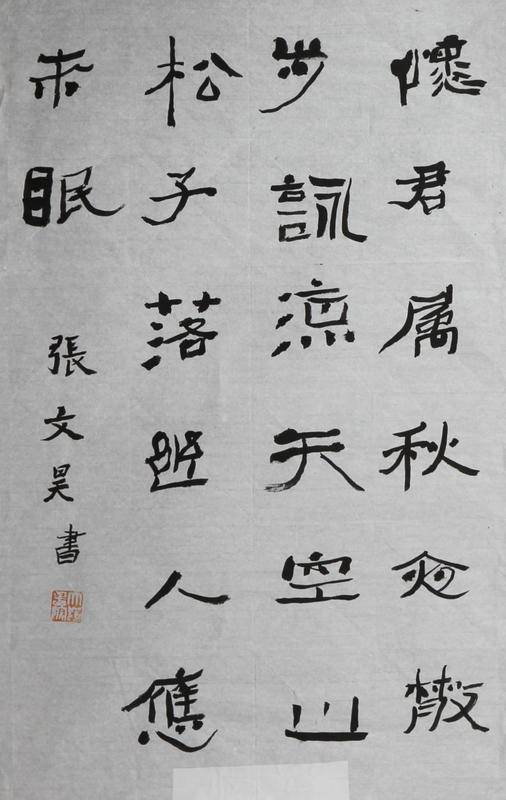 懷君属秋夜散
步詠涼天空山
松子落幽人應
未眠
張文昊書